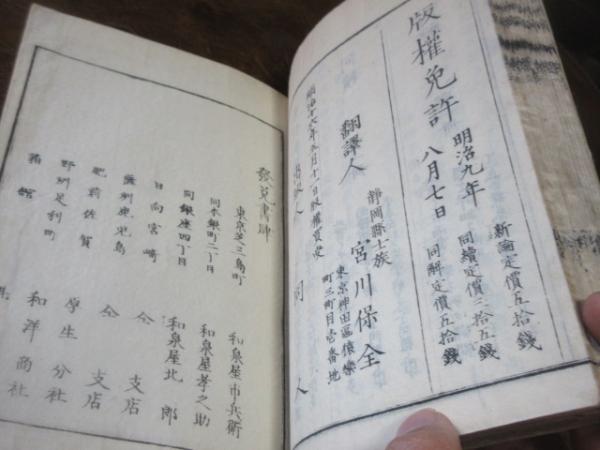 版權免許
明治九年
八月七日
新論定價五拾錢
同續定價三拾五錢
同解定價五拾錢
翻譯人
靜岡縣士族
宮川保全
東京神田區猿樂
町三町目壱番地
明治十六年
人
同
人
發兌書肆
東京芝三島町
和泉屋市兵衛
同本銀町二丁目
和泉屋孝之助
同銀座四丁目
和泉屋北
郎
日向宮崎
仝
支店
薩州鹿児島
仝
支店
肥前佐賀
厚生分社
野州足利町
和洋商社